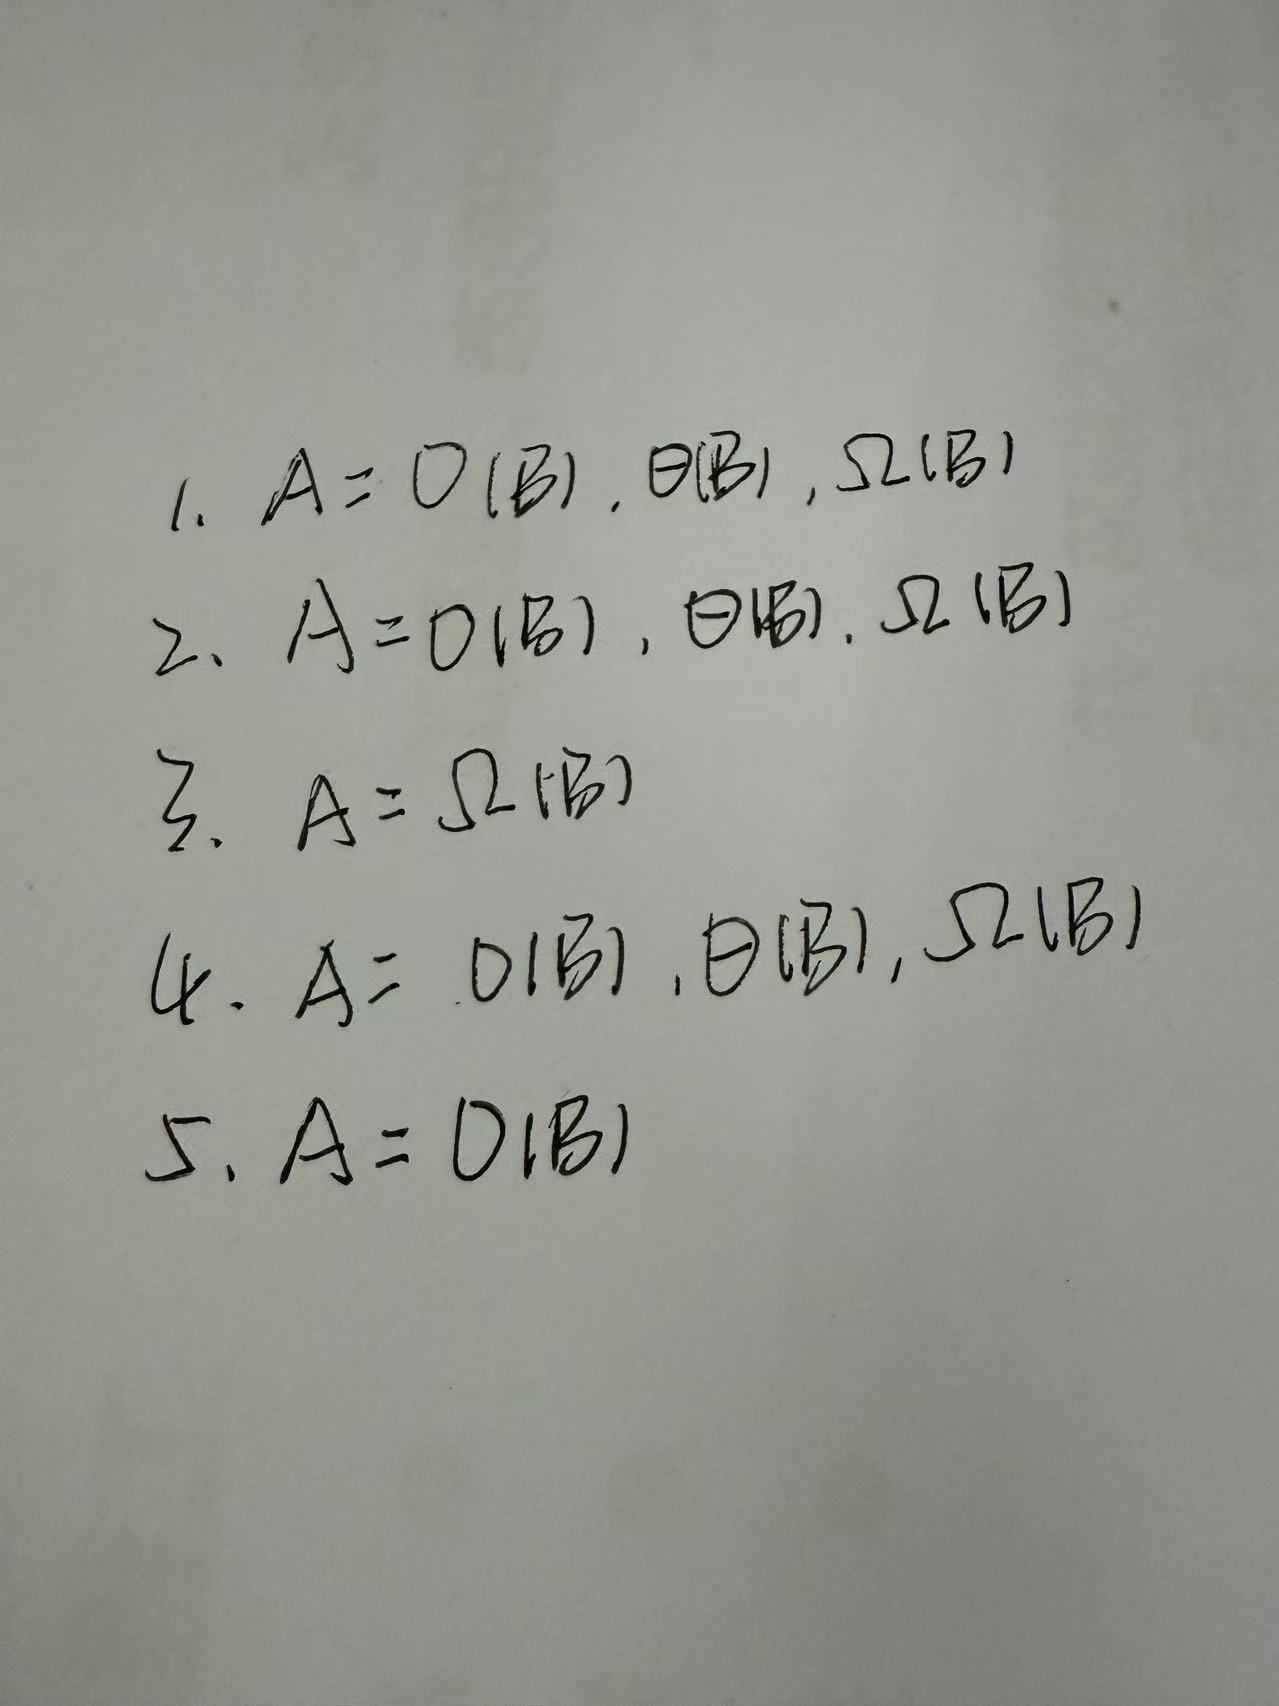 1. A = O(B), θ(B), Ω(B)
2. A = O(B), θ(B), Ω(B)
3. A = Ω(B)
4. A = O(B), θ(B), Ω(B)
5. A = O(B)